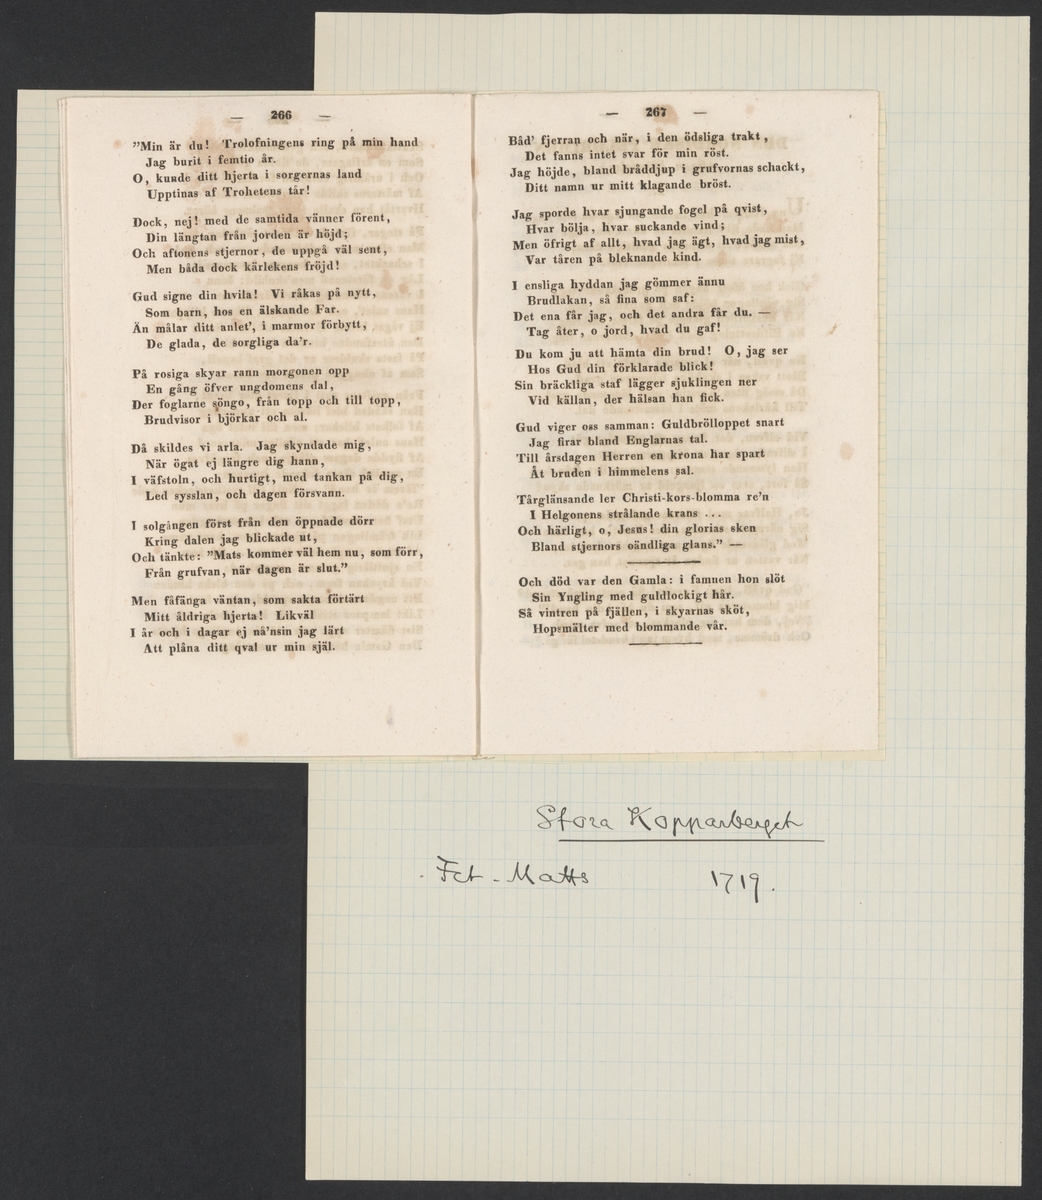 — 266 —
”Min är du! Trolofningens ring på min hand
Jag burit i femtio år.
O, kunde ditt hjerta i sorgernas land
Upptinas af Trohetens tår!
Dock, nej! med de samtida vänner förent,
Din längtan från jorden är höjd;
Och aftonens stjernor, de uppgå väl sent,
Men båda dock kärlekens fröjd!
Gud signe din hvila! Vi råkas på nytt,
Som barn, hos en älskande Far.
Än målar ditt anlet’, i marmor förbytt,
De glada, de sorgliga da’r.
På rosiga skyar rann morgonen opp
En gång öfver ungdomens dal,
Der foglarne söngo, från topp och till topp,
Brudvisor i björkar och al.
Då skildes vi arla. Jag skyndade mig,
När ögat ej längre dig hann,
I väfstoln, och hurtigt, med tankan på dig,
Led sysslan, och dagen försvann.
I solgången först från den öppnade dörr
Kring dalen jag blickade ut,
Och tänkte: ”Mats kommer väl hem nu, som förr,
Från grufvan, när dagen är slut.”
Men fåfänga väntan, som sakta förtärt
Mitt åldriga hjerta! Likväl
I år och i dagar ej nå’nsin jag lärt
Att plåna ditt qval ur min själ.
— 267 —
Båd’ fjerran och när, i den ödsliga trakt,
Det fanns intet svar för min röst.
Jag höjde, bland bråddjup i grufvornas schackt,
Ditt namn ur mitt klagande bröst.
Jag sporde hvar sjungande fogel på qvist,
Hvar bölja, hvar suckande vind;
Men öfrigt af allt, hvad jag ägt, hvad jag mist,
Var tåren på bleknande kind.
I ensliga hyddan jag gömmer ännu
Brudlakan, så fina som saf:
Det ena får jag, och det andra får du. —
Tag åter, o jord, hvad du gaf!
Du kom ju att hämta din brud! O, jag ser
Hos Gud din förklarade blick!
Sin bräckliga staf lägger sjuklingen ner
Vid källan, der hälsan han fick.
Gud viger oss samman: Guldbrölloppet snart
Jag firar bland Englarnas tal.
Till årsdagen Herren en krona har spart
Åt bruden i himmelens sal.
Tårglänsande ler Christi-kors-blomma re’n
I Helgonens strålande krans ...
Och härligt, o, Jesus! din glorias sken
Bland stjernors oändliga glans.” —
Och död var den Gamla: i famnen hon slöt
Sin Yngling med guldlockigt hår.
Så vintren på fjällen, i skyarnas sköt,
Hopsmälter med blommande vår.
Stora Kopparberget
Fet-Matts 1719.